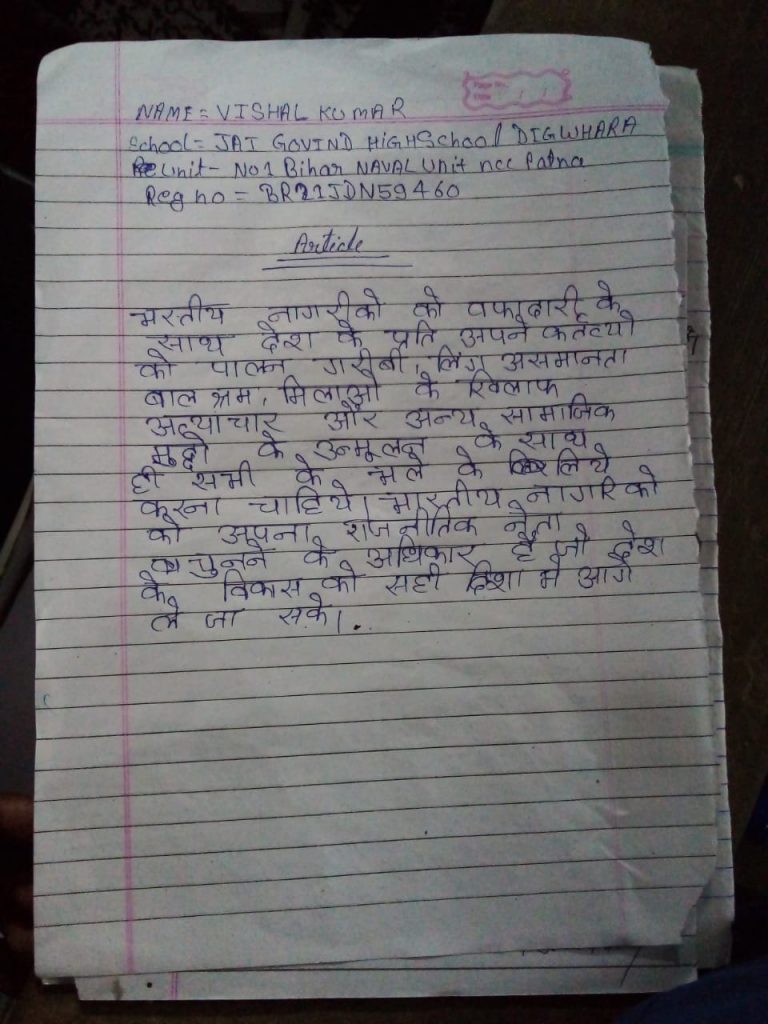 NAME = VISHAL KUMAR
School = JAI GOVIND HIGHSchool DIGWHARA
Unit - No 1 Bihar NAVAL Unit ncc Patna
Reg no = BR21JDN59460
Article
भरतीय नागरीको को वफादारी के
साथ देश के प्रति अपने कर्तव्यो
को पालन गरीबी, लिंग असमानता
बाल श्रम, मिलाओ के खिलाफ
अत्याचार और अन्य सामाजिक
मुद्दो के उन्मूलन के साथ
ही सभी के भले के लिये
करना चाहिये। भारतीय नागरिको
को अपना राजनीतिक नेता
चुनने के अधिकार है जो देश
के विकास को सही दिशा मे आगे
ले जा सके।.